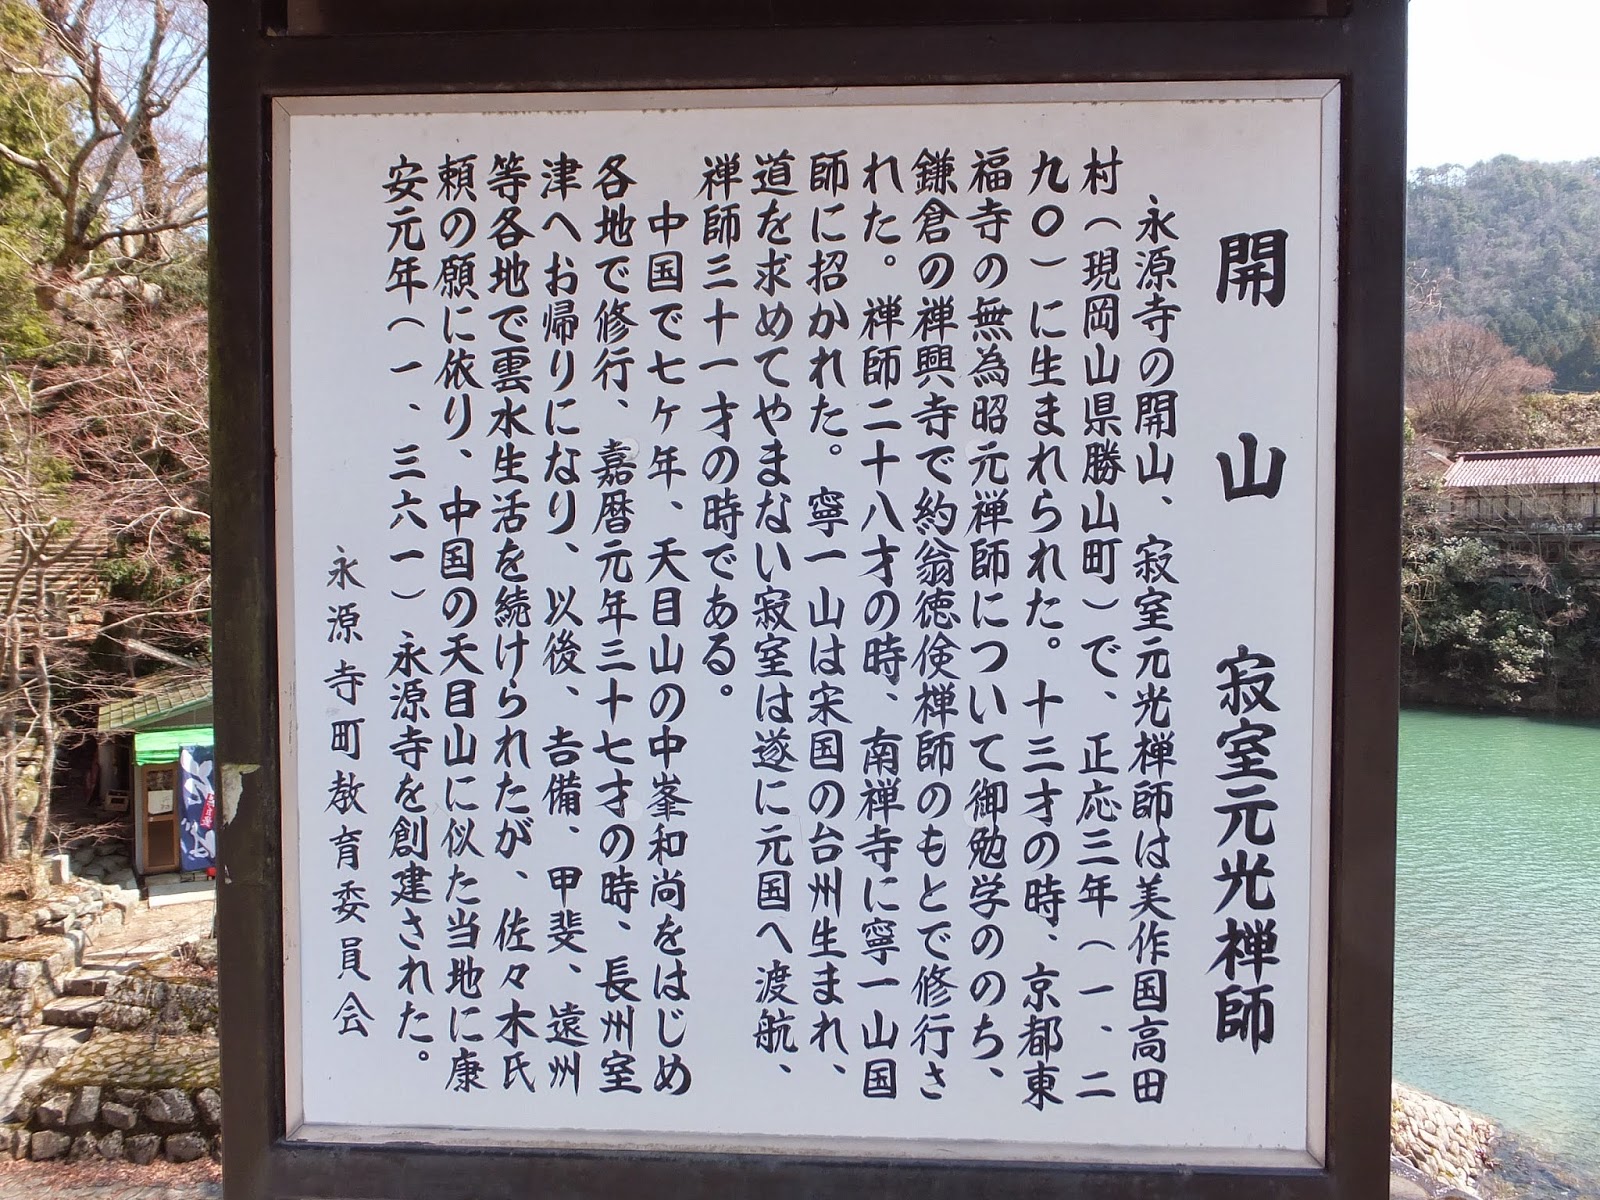 開山 寂室元光禅師
永源寺の開山、寂室元光禅師は美作国高田
村(現岡山県勝山町)で、正応三年(一、二
九〇)に生まれられた。十三才の時、京都東
福寺の無為昭元禅師について御勉学ののち、
鎌倉の禅興寺で約翁徳倹禅師のもとで修行さ
れた。禅師二十八才の時、南禅寺に寧一山国
師に招かれた。寧一山は宋国の台州生まれ、
道を求めてやまない寂室は遂に元国へ渡航、
禅師三十一才の時である。
中国で七ヶ年、天目山の中峯和尚をはじめ
各地で修行、嘉暦元年三十七才の時、長州室
津へお帰りになり、以後、吉備、甲斐、遠州
等各地で雲水生活を続けられたが、佐々木氏
頼の願に依り、中国の天目山に似た当地に康
安元年(一、三六一)永源寺を創建された。
永源寺町教育委員会